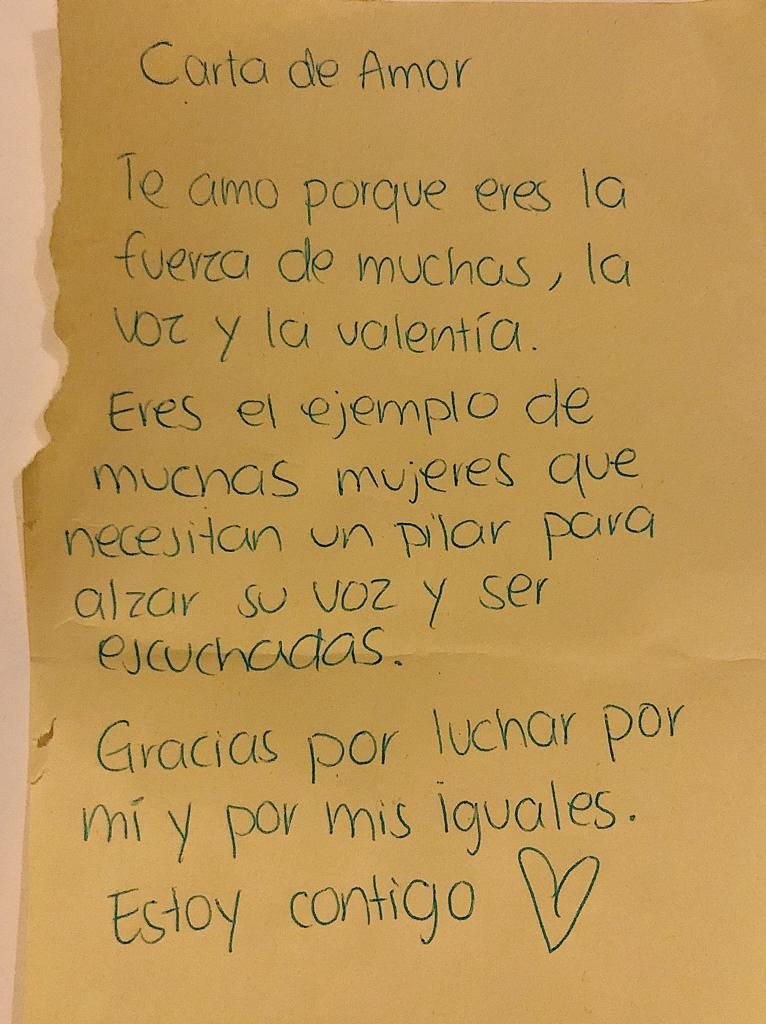 Carta de Amor
Te amo porque eres la
fuerza de muchas, la
voz y la valentía.
Eres el ejemplo de
muchas mujeres que
necesitan un pilar para
alzar su voz y ser
escuchadas.
Gracias por luchar por
mí y por mis iguales.
Estoy contigo ♡